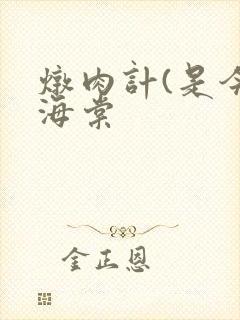 燉肉計(是今
海棠
金正恩